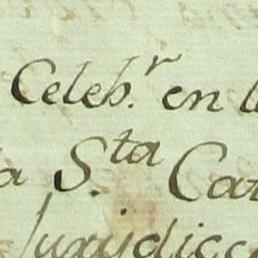 Celeb.r en l
a S.ta Cat
Juri[dicc